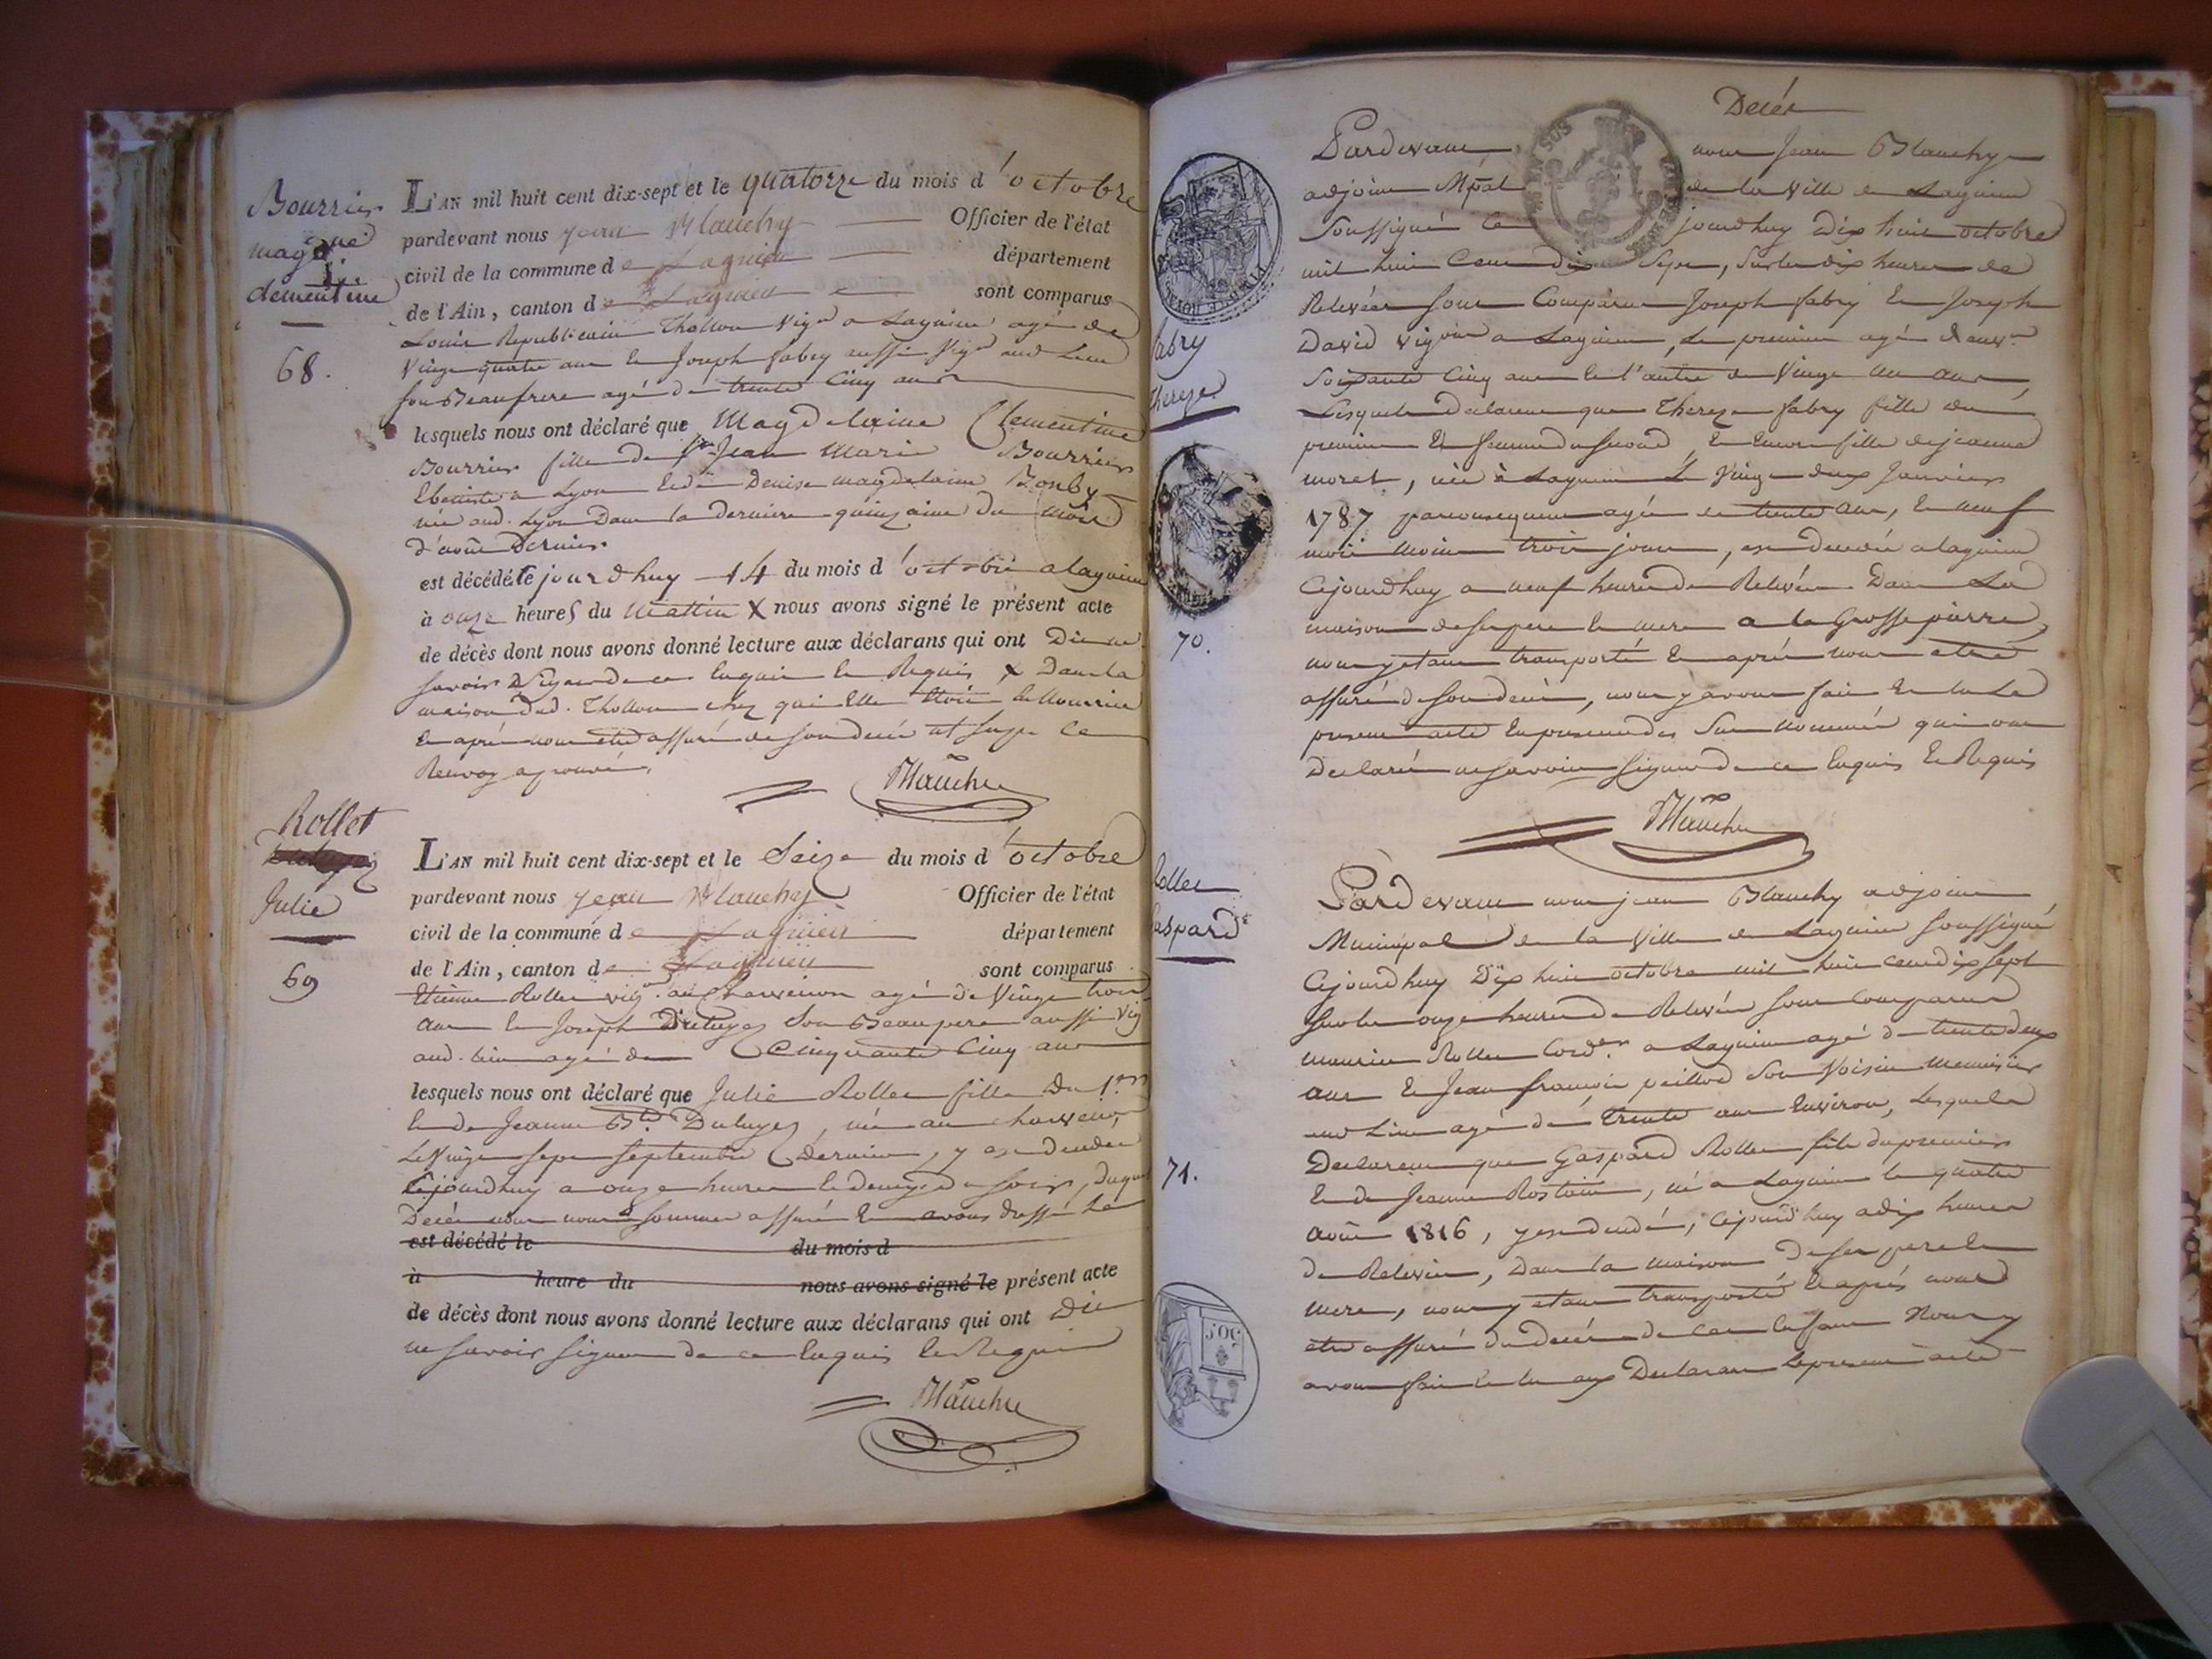 Bourrier
magne
clementine
68.
L'AN mil huit cent dix-sept et le quatorze du mois d'octobre
pardevant nous jean Blanchy Officier de l'état
civil de la commune de Lagnieu département
de l'Ain, canton de Lagnieu sont comparus
Louis Republicain Thollon Vign a Lagnieu agé de
Vingt quatre ans et Joseph fabry aussi Vign aud Lieu
son Beaufrere agé de trente Cinq ans
lesquels nous ont déclaré que Magdelaine Clementine
Bourrier fille de Sr Jean Marie Bourrier
Ebeniste a Lyon et de Denise magdelaine
née aud. Lyon Dans la derniere quinzaine du mois
d'aout Dernier
est décédé le jourdhuy 14 du mois d'octobre a lagnieu
à onze heures du Mattin X nous avons signé le présent acte
de décès dont nous avons donné lecture aux déclarans qui ont Dit ne
savoir Signer de ce Enquis et Requis X Dans la
maison dud. Thollon chez qui Elle etoit En Nourrice
Et après nous etre assuré de son decès
Renvoy aprouvé
Blanchy
Rollet
Julie
69
L'AN mil huit cent dix-sept et le Seize du mois d'octobre
pardevant nous jean Blanchy Officier de l'état
civil de la commune de Lagnieu département
de l'Ain, canton de Lagnieu sont comparus
Etienne Rollet vign. au Charveron agé de Vingt trois
ans et Joseph Duluyez Son Beaupere aussi Vig
aud. lieu agé de Cinquante Cinq ans
lesquels nous ont déclaré que Julie Rollet fille du 1er
et de Jeanne Bte Duluyez, née au
Le Vingt sept Septembre Dernier, y est decedée
Cejourdhuy a onze heures et demy du soir, duquel
Decès nous nous sommes assuré Et avons dressé Le
est décédé le du mois d
à heure du nous avons signé le présent acte
de décès dont nous avons donné lecture aux déclarans qui ont Dit
ne savoir signer de ce Enquis et Requis
Blanchy
Decès
fabry
Thereze
70.
Pardevant nous Jean Blanchy
adjoint Mpal de la Ville de Lagnieu
Soussigné Ce jourdhuy Dix huit octobre
mil huit Cent dix Sept, Sur les dix heures de
Relevées sont Comparus Joseph fabry Et Joseph
David vignons a Lagnieu, Le premier agé
Soixante Cinq ans Et l'autre de Vingt un ans,
Lesquels Declarent que Thereze fabry fille du
premier Et femme du second, Et Encore fille de jeanne
moret, née à Lagnieu Le Vingt deux Janvier
1787 parconsequent agée de trente ans, Et neuf
mois moins trois jours, est decedée a lagnieu
Cejourdhuy a neuf heures de Relevée Dans La
maison de ses pere Et mere a la Grosse pierre,
nous y etant transporté Et après nous etre
assuré de son decès, nous y avons fait Et lu Le
present acte En presence des Sus nommés qui ont
Declaré ne savoir signer de ce Enquis Et Requis
Blanchy
Rollet
Gaspard
71.
Pardevant nous jean Blanchy adjoint
Municipal de la Ville de Lagnieu soussigné
Cejourdhuy Dix huit octobre mil huit cent dix sept
Sur les onze heures de Relevée sont Comparus
maurice Rollet Cordr a Lagnieu agé de trente deux
ans Et Jean françois peillod Son Voisin Menuisier
aud Lieu agé de trente ans Environ, Lesquels
Declarent que Gaspard Rollet fils du premier
Et de Jeanne Rostain, né a Lagnieu le quatre
août 1816, y est decedé, Cejourdhuy a dix heures
de Relevée, Dans la maison De ses pere Et
mere, nous y etant transporté Et après nous
etre assuré du Decés de cet Enfant Nous y
avons fait Et lu aux Declarans Le present acte